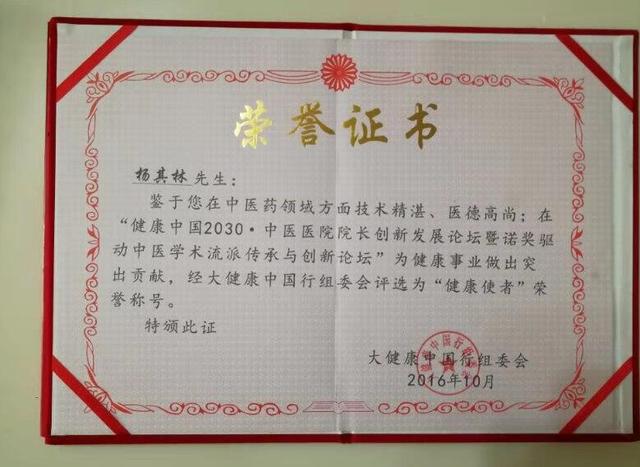 荣誉证书
杨其林先生：
鉴于您在中医药领域方面技术精湛、医德高尚；在
“健康中国2030·中医医院院长创新发展论坛暨诺奖驱
动中医学术流派传承与创新论坛”为健康事业做出突
出贡献，经大健康中国行组委会评选为“健康使者”荣
誉称号。
特颁此证
大健康中国行组委会
2016年10月